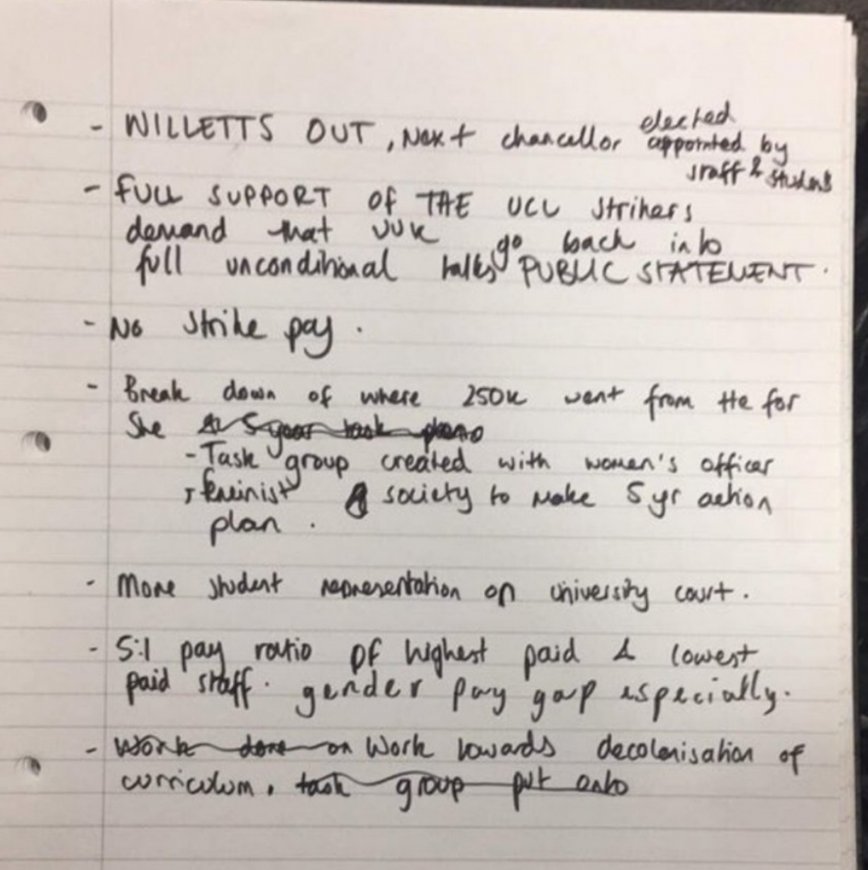 - WILLETTS OUT, Next chancellor elected appointed by
staff & student
- FULL SUPPORT OF THE UCU strikers
demand that UUK go back into
full unconditional talks PUBLIC STATEMENT.
- No strike pay.
- Break down of where 250k went from He for
She
- Task group created with women's officer
+ feminist society to make 5 yr action
plan.
- More student representation on university court.
- 5:1 pay ratio of highest paid & lowest
paid staff. gender pay gap especially.
- Work done on Work towards decolonisation of
curriculum. task group put onto